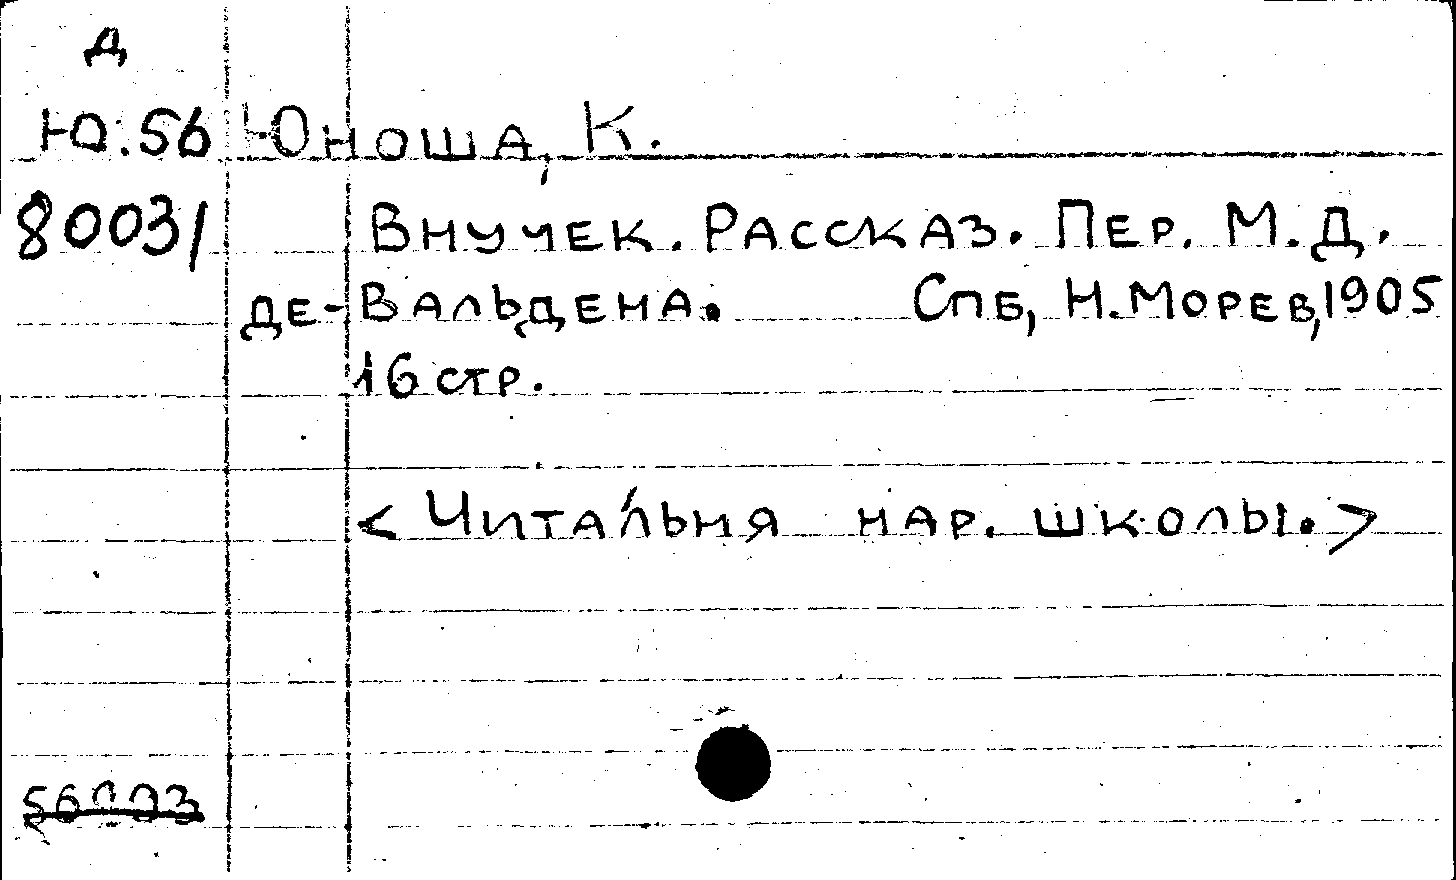 Д
Ю.56 Юноша, К.
80031 Внучек. Рассказ. Пер. М.Д.
де-Вальдена. Спб, Н.Морев,1905
16 стр.
< Читальня нар. школы. >